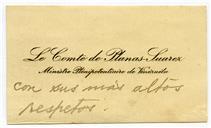 Le Comte de Planas-Suarez
Ministre Plénipotentiaire de Vénézuela
con sus más altos
respetos.